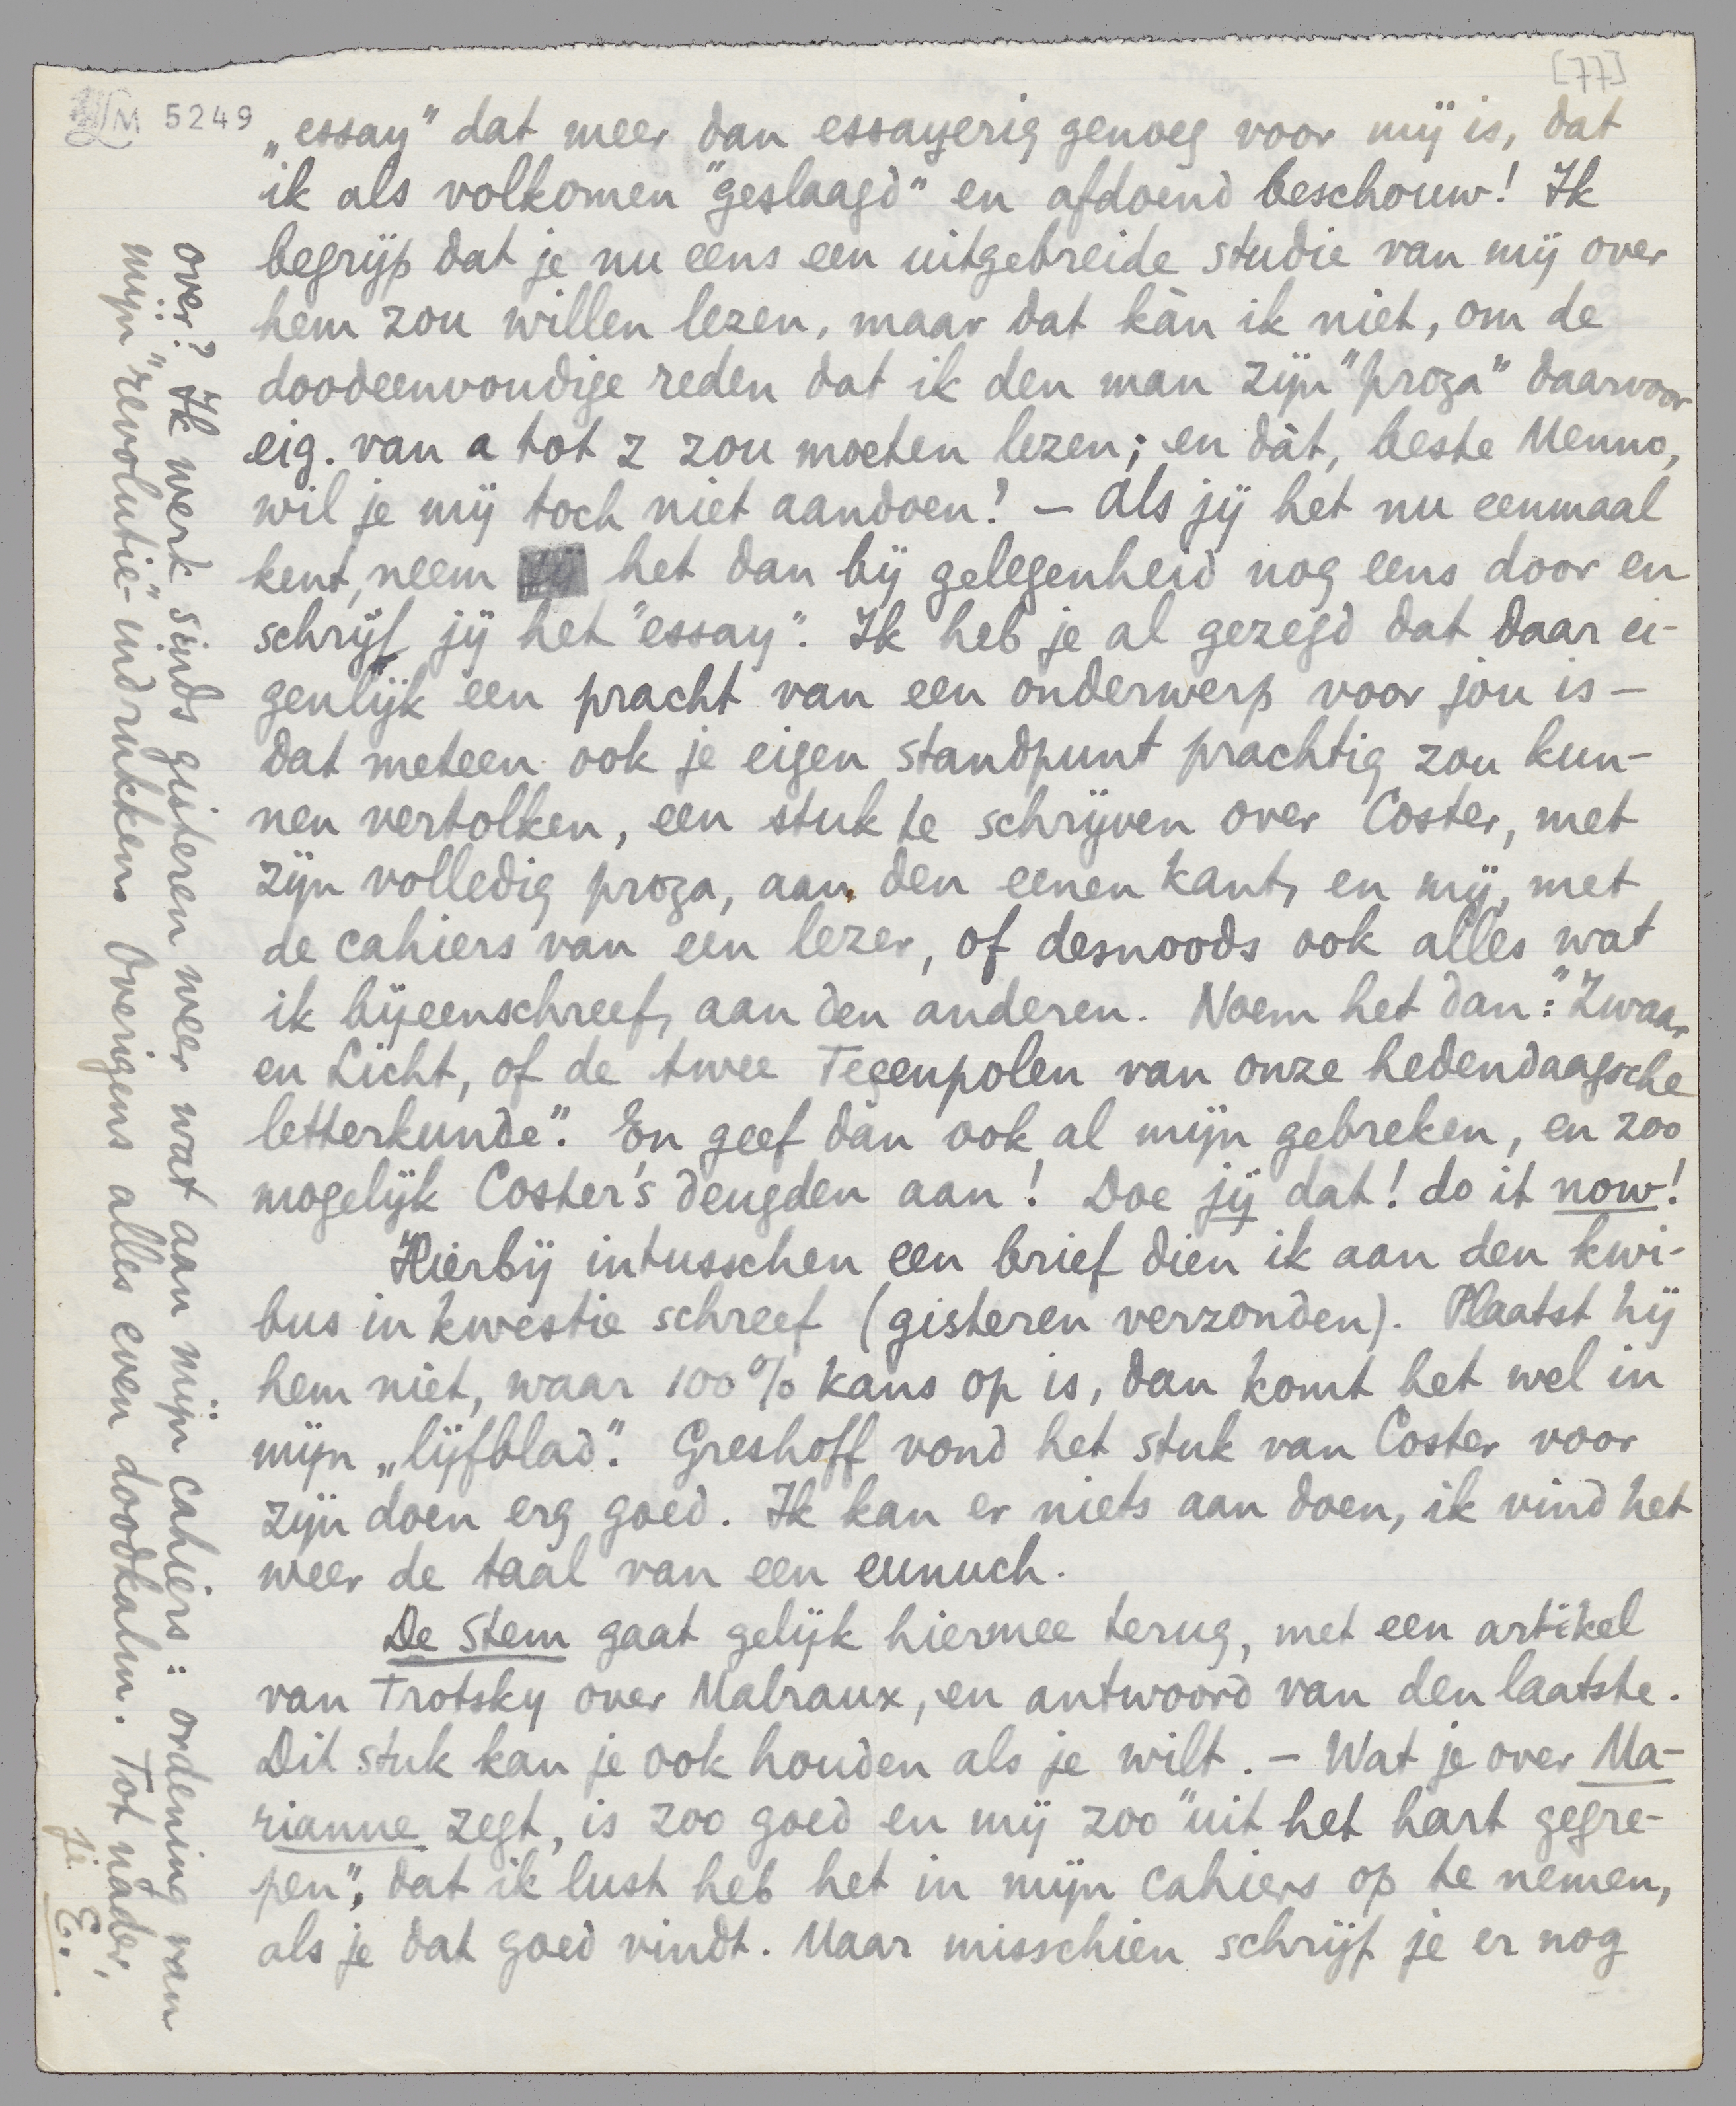 [77]
LM 5249
„essay" dat meer dan essayerig genoeg voor mij is, dat
ik als volkomen "geslaagd" en afdoend beschouw! Ik
begrijp dat je nu eens een uitgebreide studie van mij over
hem zou willen lezen, maar dat kàn ik niet, om de
doodeenvoudige reden dat ik den man zijn "proza" daarvoor
eig. van a tot z zou moeten lezen; en dàt, beste Menno,
wil je mij toch niet aandoen? – Als jij het nu eenmaal
kent, neem het dan bij gelegenheid nog eens door en
schrijf jij het "essay". Ik heb je al gezegd dat daar ei-
genlijk een pracht van een onderwerp voor jou is –
dat meteen ook je eigen standpunt prachtig zou kun-
nen vertolken, een stuk te schrijven over Coster, met
zijn volledig proza, aan den eenen kant, en mij, met
de cahiers van een lezer, of desnoods ook alles wat
ik bijeenschreef, aan den anderen. Noem het dan: "Zwaar
en Licht, of de twee Tegenpolen van onze hedendaagsche
letterkunde". En geef dan ook al mijn gebreken, en zoo
mogelijk Coster's deugden aan! Doe jij dat! do it now!
Hierbij intusschen een brief dien ik aan den kwi-
bus in kwestie schreef (gisteren verzonden). Plaatst hij
hem niet, waar 100% kans op is, dan komt het wel in
mijn „lijfblad". Greshoff vond het stuk van Coster voor
zijn doen erg goed. Ik kan er niets aan doen, ik vind het
weer de taal van een eunuch.
De Stem gaat gelijk hiermee terug, met een artikel
van Trotsky over Malraux, en antwoord van den laatste.
Dit stuk kan je ook houden als je wilt. – Wat je over Ma-
rianne zegt, is zoo goed en mij zoo "uit het hart gegre-
pen", dat ik lust heb het in mijn cahiers op te nemen,
als je dat goed vindt. Maar misschien schrijf je er nog
over? Ik werk sinds gisteren weer wat aan mijn cahiers: ordening van
mijn "revolutie"-indrukken. Overigens alles even doodkalm. Tot nader,
je E.